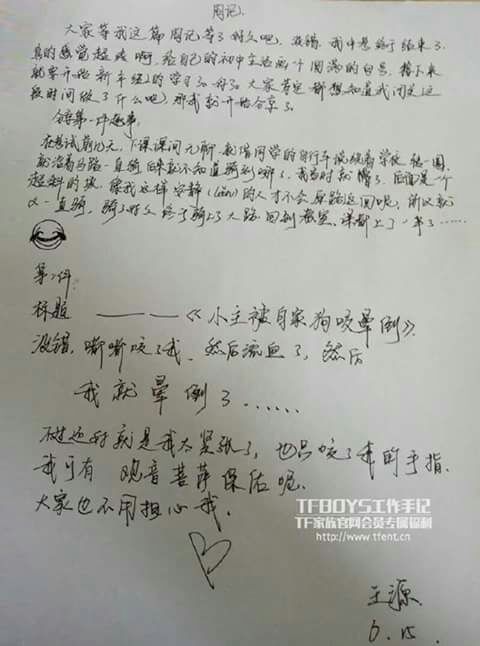 周记.
大家等我这篇周记等了好久吧，没错，我中考终于结束了
真的感觉超爽啊，给自己的初中生活画个圆满的句号，接下来
就要开始新年级的学习了。好了大家肯定都想知道我闭关这
段时间做了什么吧）那我就开始分享了
分享第一件趣事，
在考试前几天，下课课间无聊，就借同学的自行车说绕着学校 骑一圈，
就沿着马路一直骑 结果就不知道骑到哪了，我当时就懵了，后面是一个
超斜的坡，像我这样安静 的人才不会原路返回呢，所以就
一直骑，骑了好久终于骑上了大路回到教室，课都上了一半了……
第2件
标题 ———《小主被自家狗咬晕倒》
没错，嘶嘶咬了我，然后流血了，然后
我就晕倒了……
不过还好就是我太紧张了，也只咬了我的手指，
我可有 观音菩萨保佑呢，
大家也不用担心我，
王源
6.15.
TFBOYS工作手记
TF家族官网会员专属福利
http://www.tfent.cn